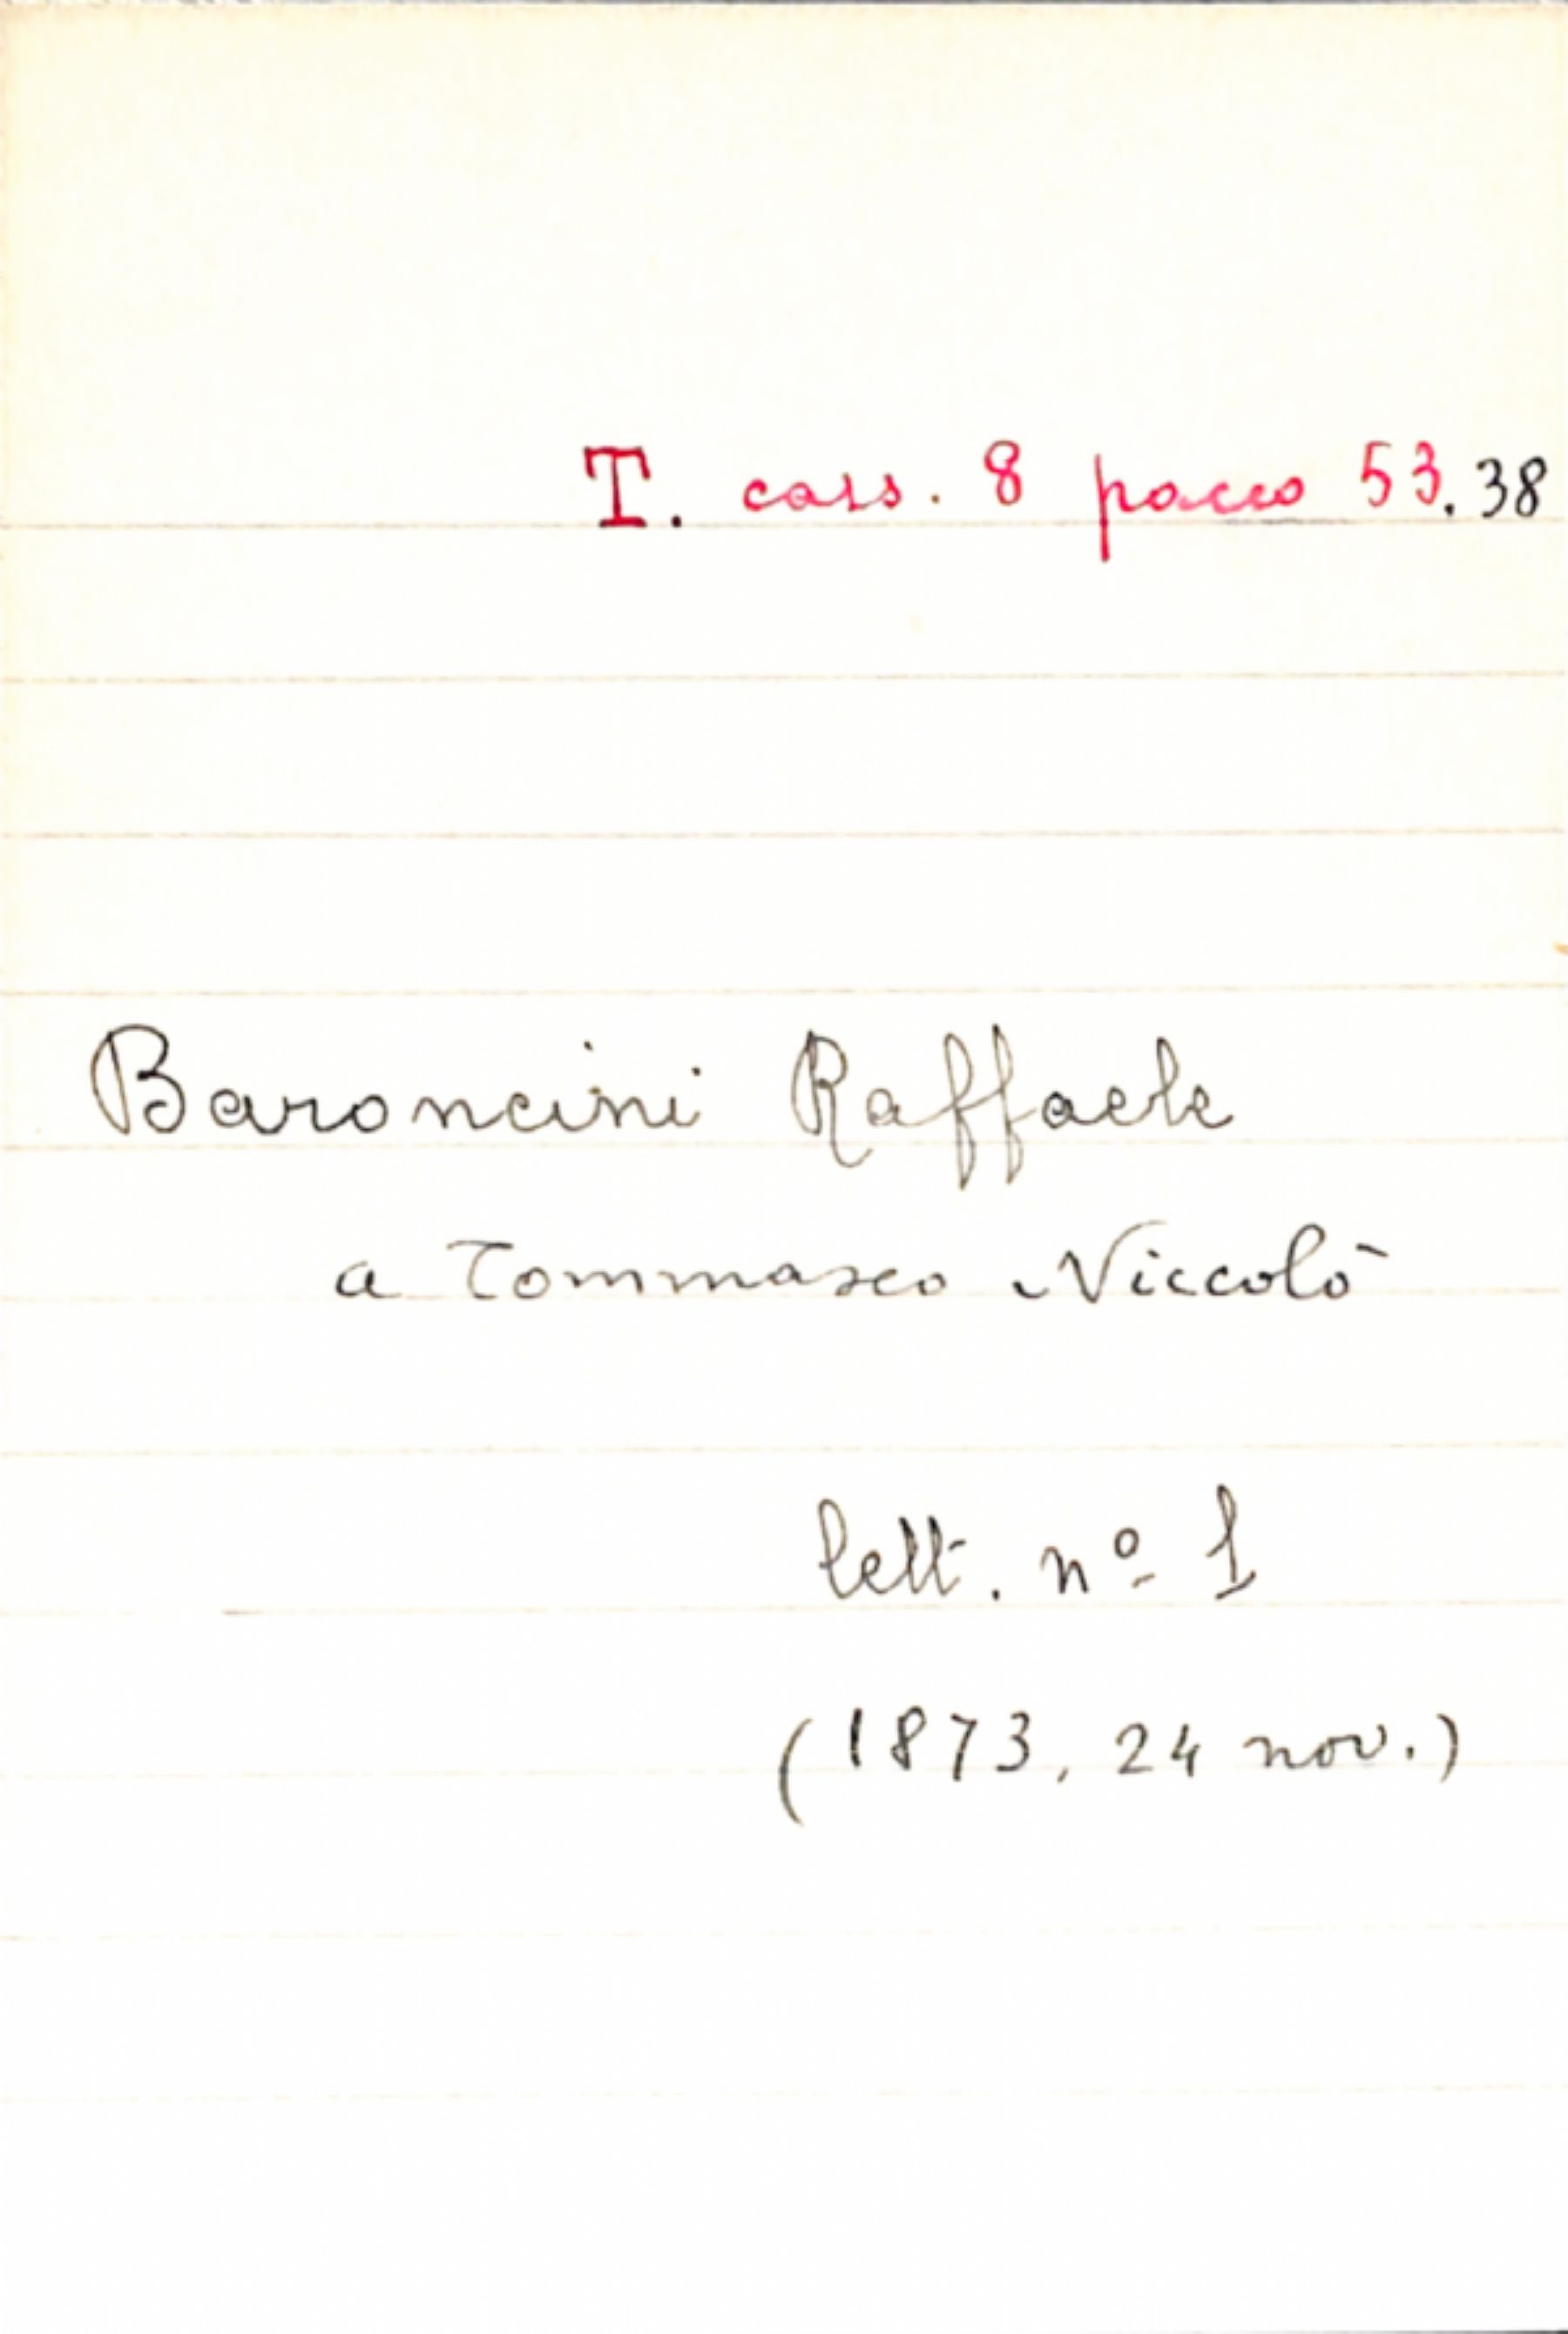 T. cass. 8 pacco 53.38
Baroncini Raffaele
a Tommaseo Niccolò
lett. nº 1
(1873, 24 nov.)